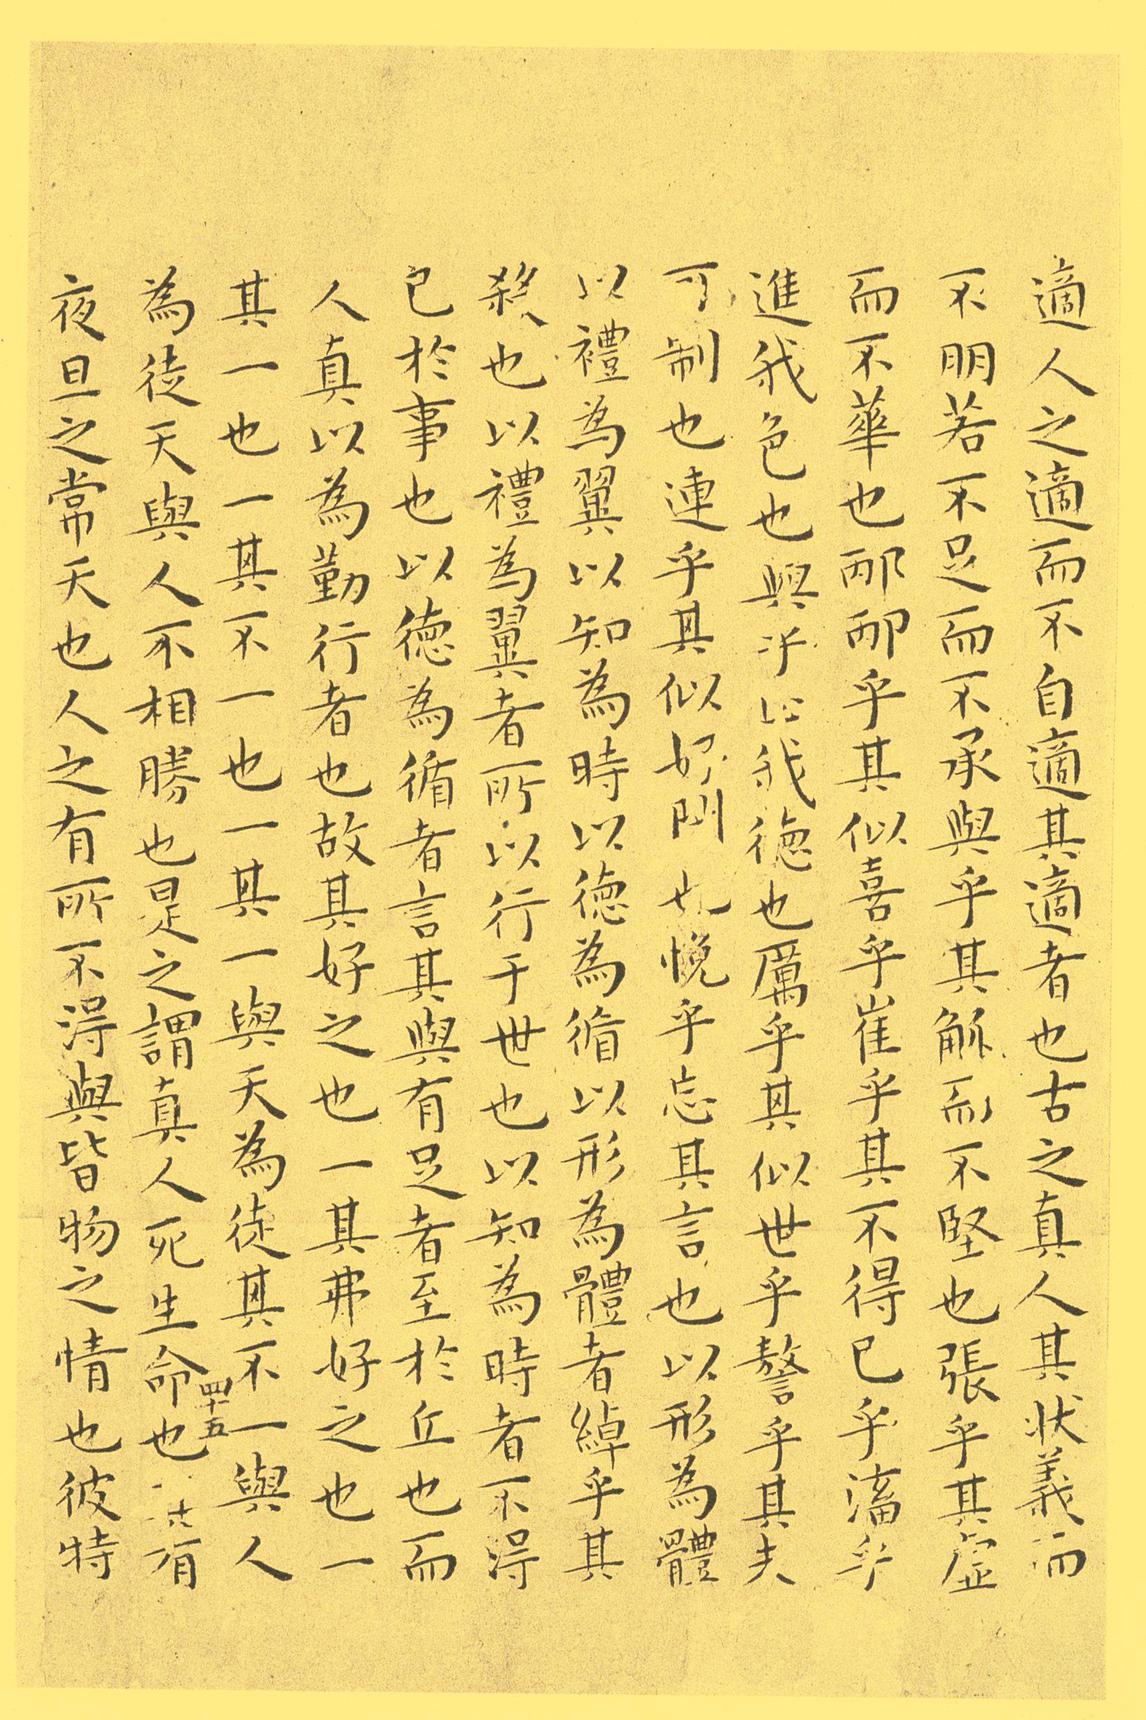 適人之適而不自適其適者也古之真人其状義而
不朋若不足而不承與乎其觚而不堅也張乎其虛
而不華也邴邴乎其似喜乎崔乎其不得已乎滀乎
進我色也與乎止我德也厲乎其似世乎謷乎其未
可制也連乎其似好閉也悗乎忘其言也以形為體
以禮為翼以知為時以德為循以形為體者綽乎其
殺也以禮為翼者所以行于世也以知為時者不得
已於事也以德為循者言其與有足者至於丘也而
人真以為勤行者也故其好之也一其弗好之也一
其一也一其不一也一其一與天為徒其不一與人
為徒天與人不相勝也是之謂真人死生命也其有
夜旦之常天也人之有所不得與皆物之情也彼特
四十五